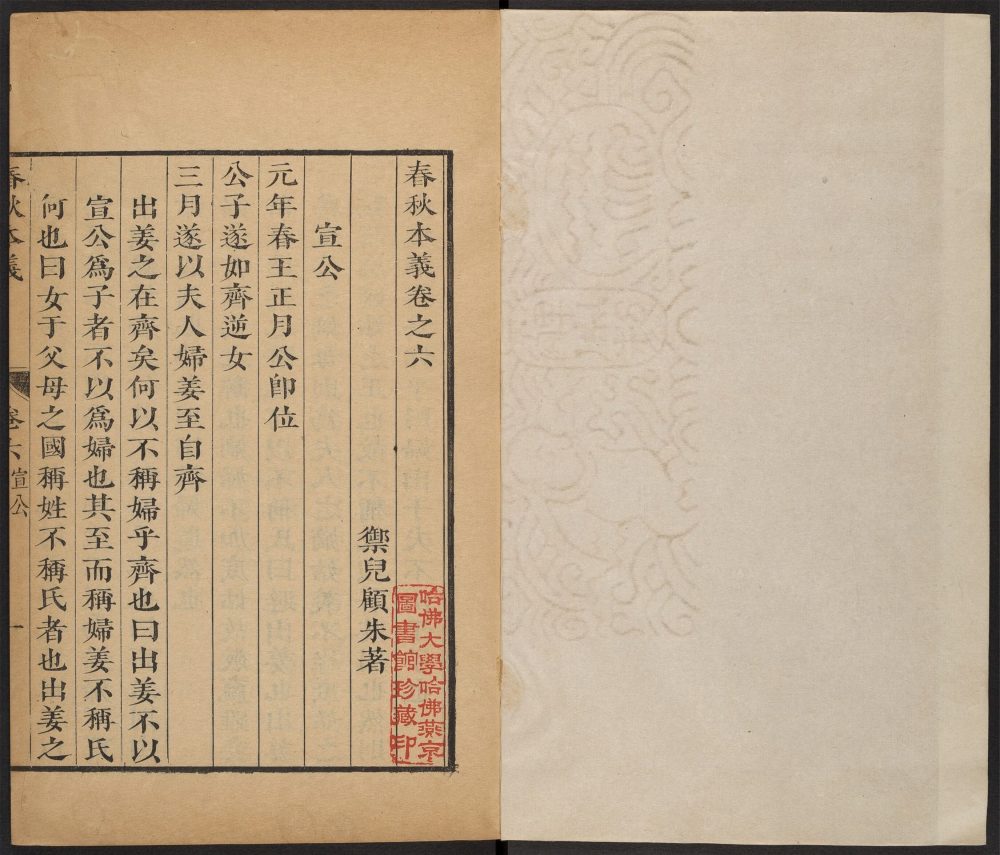 春秋本義卷之六
禦兒顧朱著
宣公
元年春王正月公卽位
公子遂如齊逆女
三月遂以夫人婦姜至自齊
出姜之在齊矣何以不稱婦乎齊也曰出姜不以
宣公爲子者不以爲婦也其至而稱婦姜不稱氏
何也曰女于父母之國稱姓不稱氏者也出姜之
春秋本義
卷六 宣公
一
哈佛大學哈佛燕京
圖書館珍藏印